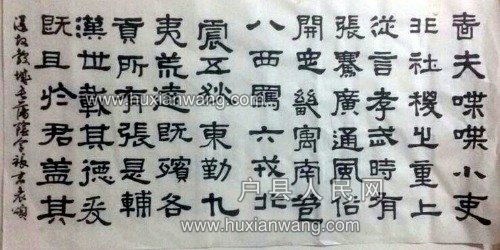 嗇夫喋喋小吏
非社稷之重上
從言孝武時有
張騫廣通風俗
開定畿寓南苞
八西羈六戎北
震五狄東勤九
夷荒遠既殯各
貢所有張是輔
漢世載其德爰
既且於君蓋其
穀城長蕩陰令 表頌
www.huxianwang.com
www.huxianwang.com
户县人民网
www.huxianwang.com